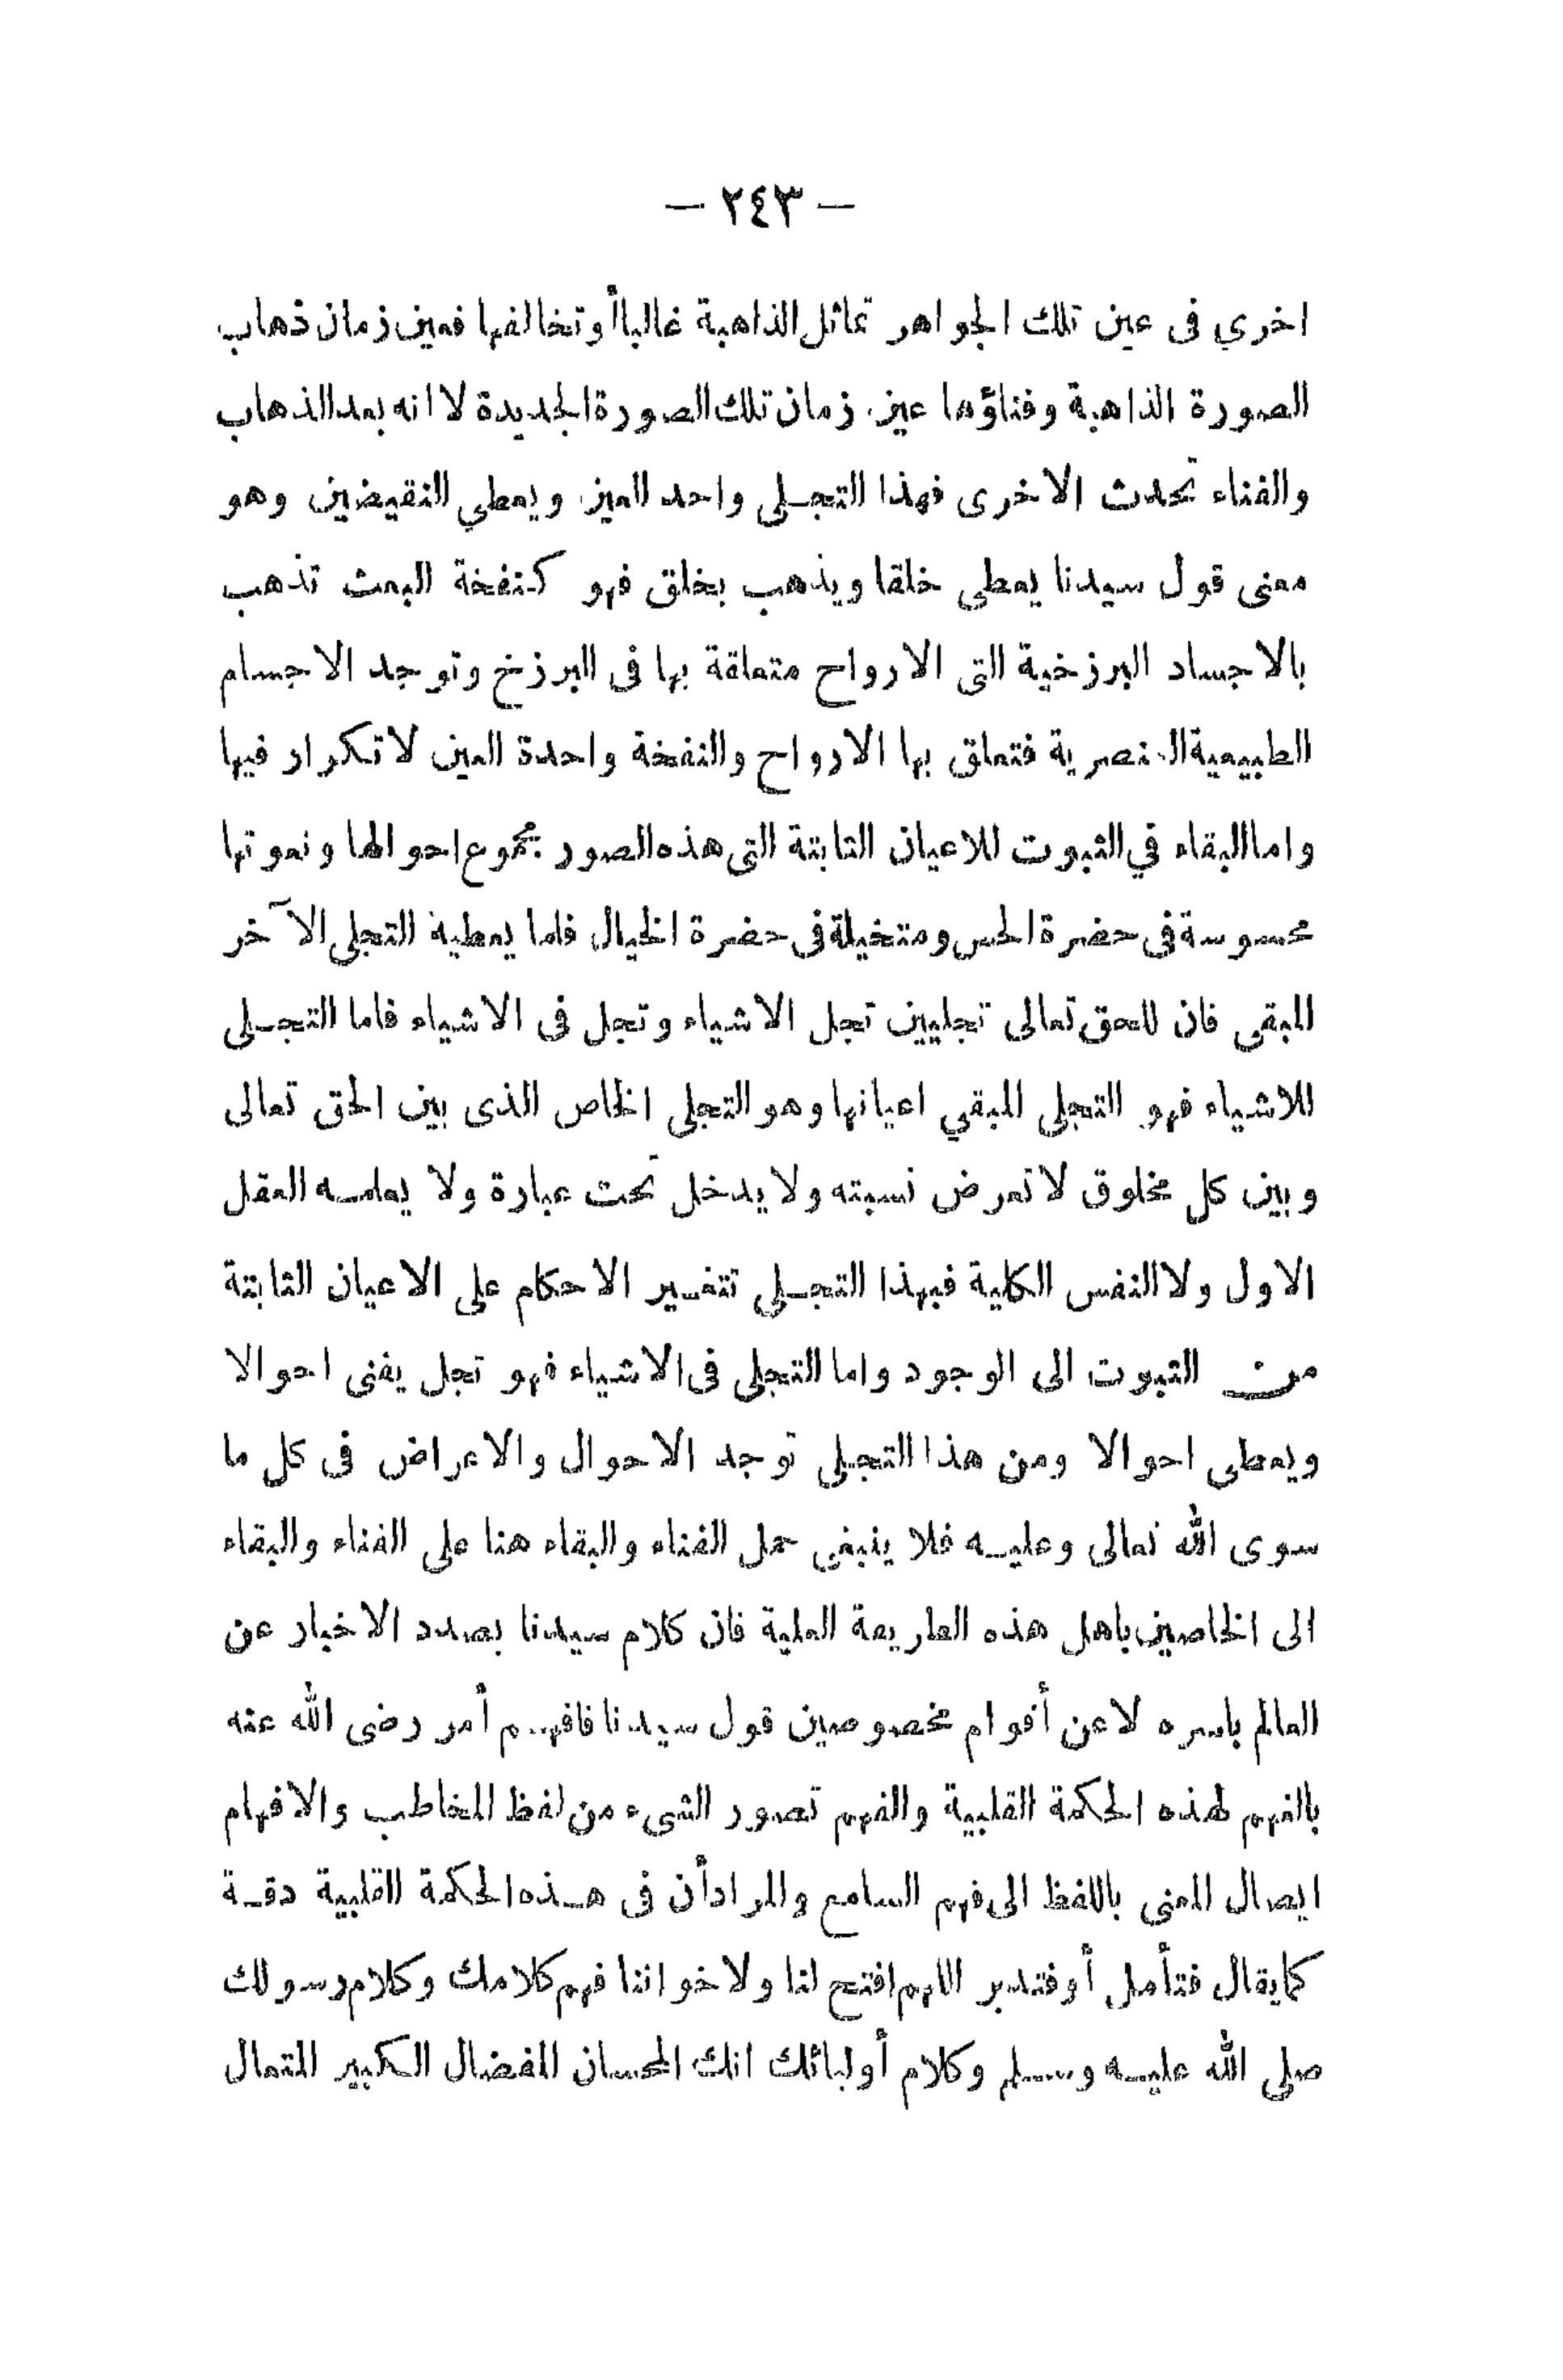 — ٢٤٣ —
اخري فى عين تلك الجواهر تماثل الذاهبة غالباأوتخالفها فعين زمان ذهاب
الصورة الذاهبة وفناؤها عين زمان تلك الصورة الجديدة لا انه بعد الذهاب
والفناء تحدث الاخرى فهذا التجلى واحد العين ويعطي النقيضين وهو
معنى قول سيدنا يعطى خلقا ويذهب بخلق فهو كنفخة البعث تذهب
بالاجساد البرزخية التى الارواح متعلقة بها فى البرزخ وتوجد الاجسام
الطبيعية العنصرية فتعلق بها الارواح والنفخة واحدة العين لا تكرار فيها
واما البقاء في الثبوت للاعيان الثابتة التى هذه الصور مجموع احوالها ونعوتها
محسوسة فى حضرة الحس ومتخيلة فى حضرة الخيال فاما يعطيه التجلى الآخر
المبقى فان للحق تعالى تجليين تجل الاشياء وتجل فى الاشياء فاما التجلى
للاشياء فهو التجلى المبقي اعيانها وهو التجلى الخاص الذى بين الحق تعالى
وبين كل مخلوق لا تعرض نسبته ولا يدخل تحت عبارة ولا يعلمه العقل
الاول ولا النفس الكلية فبهذا التجلى تتغير الاحكام على الاعيان الثابتة
من الثبوت الى الوجود واما التجلى فى الاشياء فهو تجل يفنى احوالا
ويعطى احوالا ومن هذا التجلى توجد الاحوال والاعراض فى كل ما
سوى الله تعالى وعليه فلا ينبغى حمل الفناء والبقاء هنا على الفناء والبقاء
الى الخاصين باهل هذه الطريقة العلية فان كلام سيدنا بصدد الاخبار عن
العالم باسره لا عن أقوام مخصوصين قول سيدنا فافهم أمر رضى الله عنه
بالفهم لهذه الحكمة القلبية والفهم تصور الشىء من لفظ المخاطب والافهام
ايصال المعنى باللفظ الى فهم السامع والمراد أن فى هذه الحكمة القلبية دقة
كما يقال فتأمل أو فتدبر اللهم افتح لنا ولاخواننا فهم كلامك وكلام رسولك
صلى الله عليه وسلم وكلام أوليائك انك المحسان المفضال الكبير المتعال